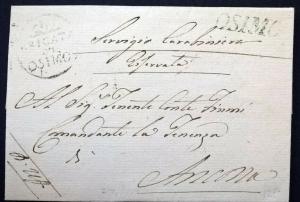 OSIMO
OSIMO
Servizio Carabiniere
Riservata
Al Sig. Tenente Conte Fiumi
Comandante la Tenenza
di
Ancona